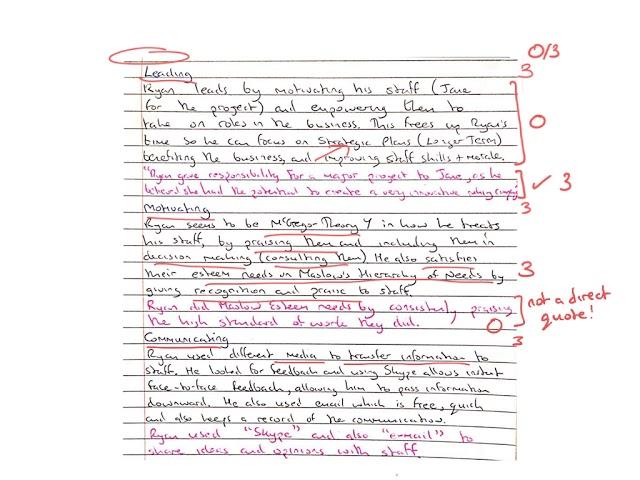 0/3
Leading 3
Ryan leads by motivating his staff (Jane
for the project) and empowering them to
take on roles in the business. This frees up Ryan's 0
time so he can focus on Strategic Plans (Longer Term)
benefiting the business, and improving staff skills + morale.
"Ryan gave responsibility for a major project to Jane, as he
believed she had the potential to create a very innovative ✓ 3
Motivating 3
Ryan seems to be McGregor Theory Y in how he treats
his staff, by praising them and including them in
decision making (consulting them) He also satisfies
their esteem needs on Maslow's Hierarchy of Needs by 3
giving recognition and praise to staff.
Ryan did Maslow Esteem needs by consistently praising
the high standard of work they did. 0 not a direct quote!
Communicating 3
Ryan used different media to transfer information to
staff. He looked for feedback and using Skype allows instant
face-to-face feedback, allowing him to pass information
downward. He also used email which is free, quick
and also keeps a record of the communication.
Ryan used "Skype" and also "e-mail" to
share ideas and opinions with staff.